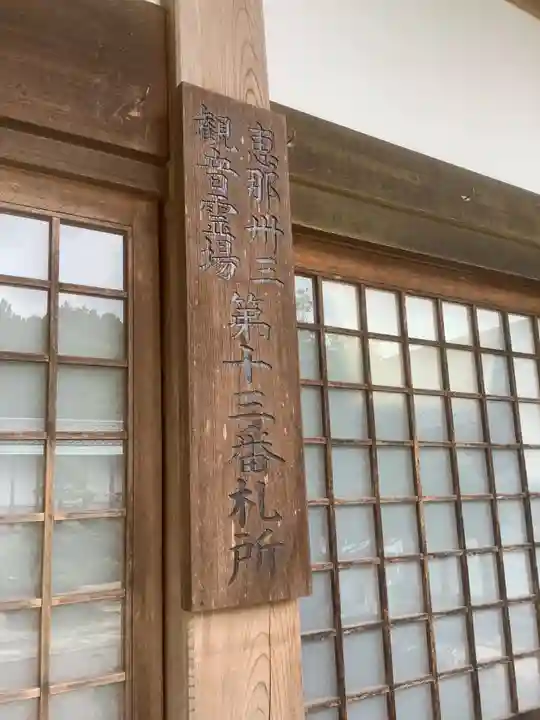 恵那卅三
観音霊場
第十三番札所